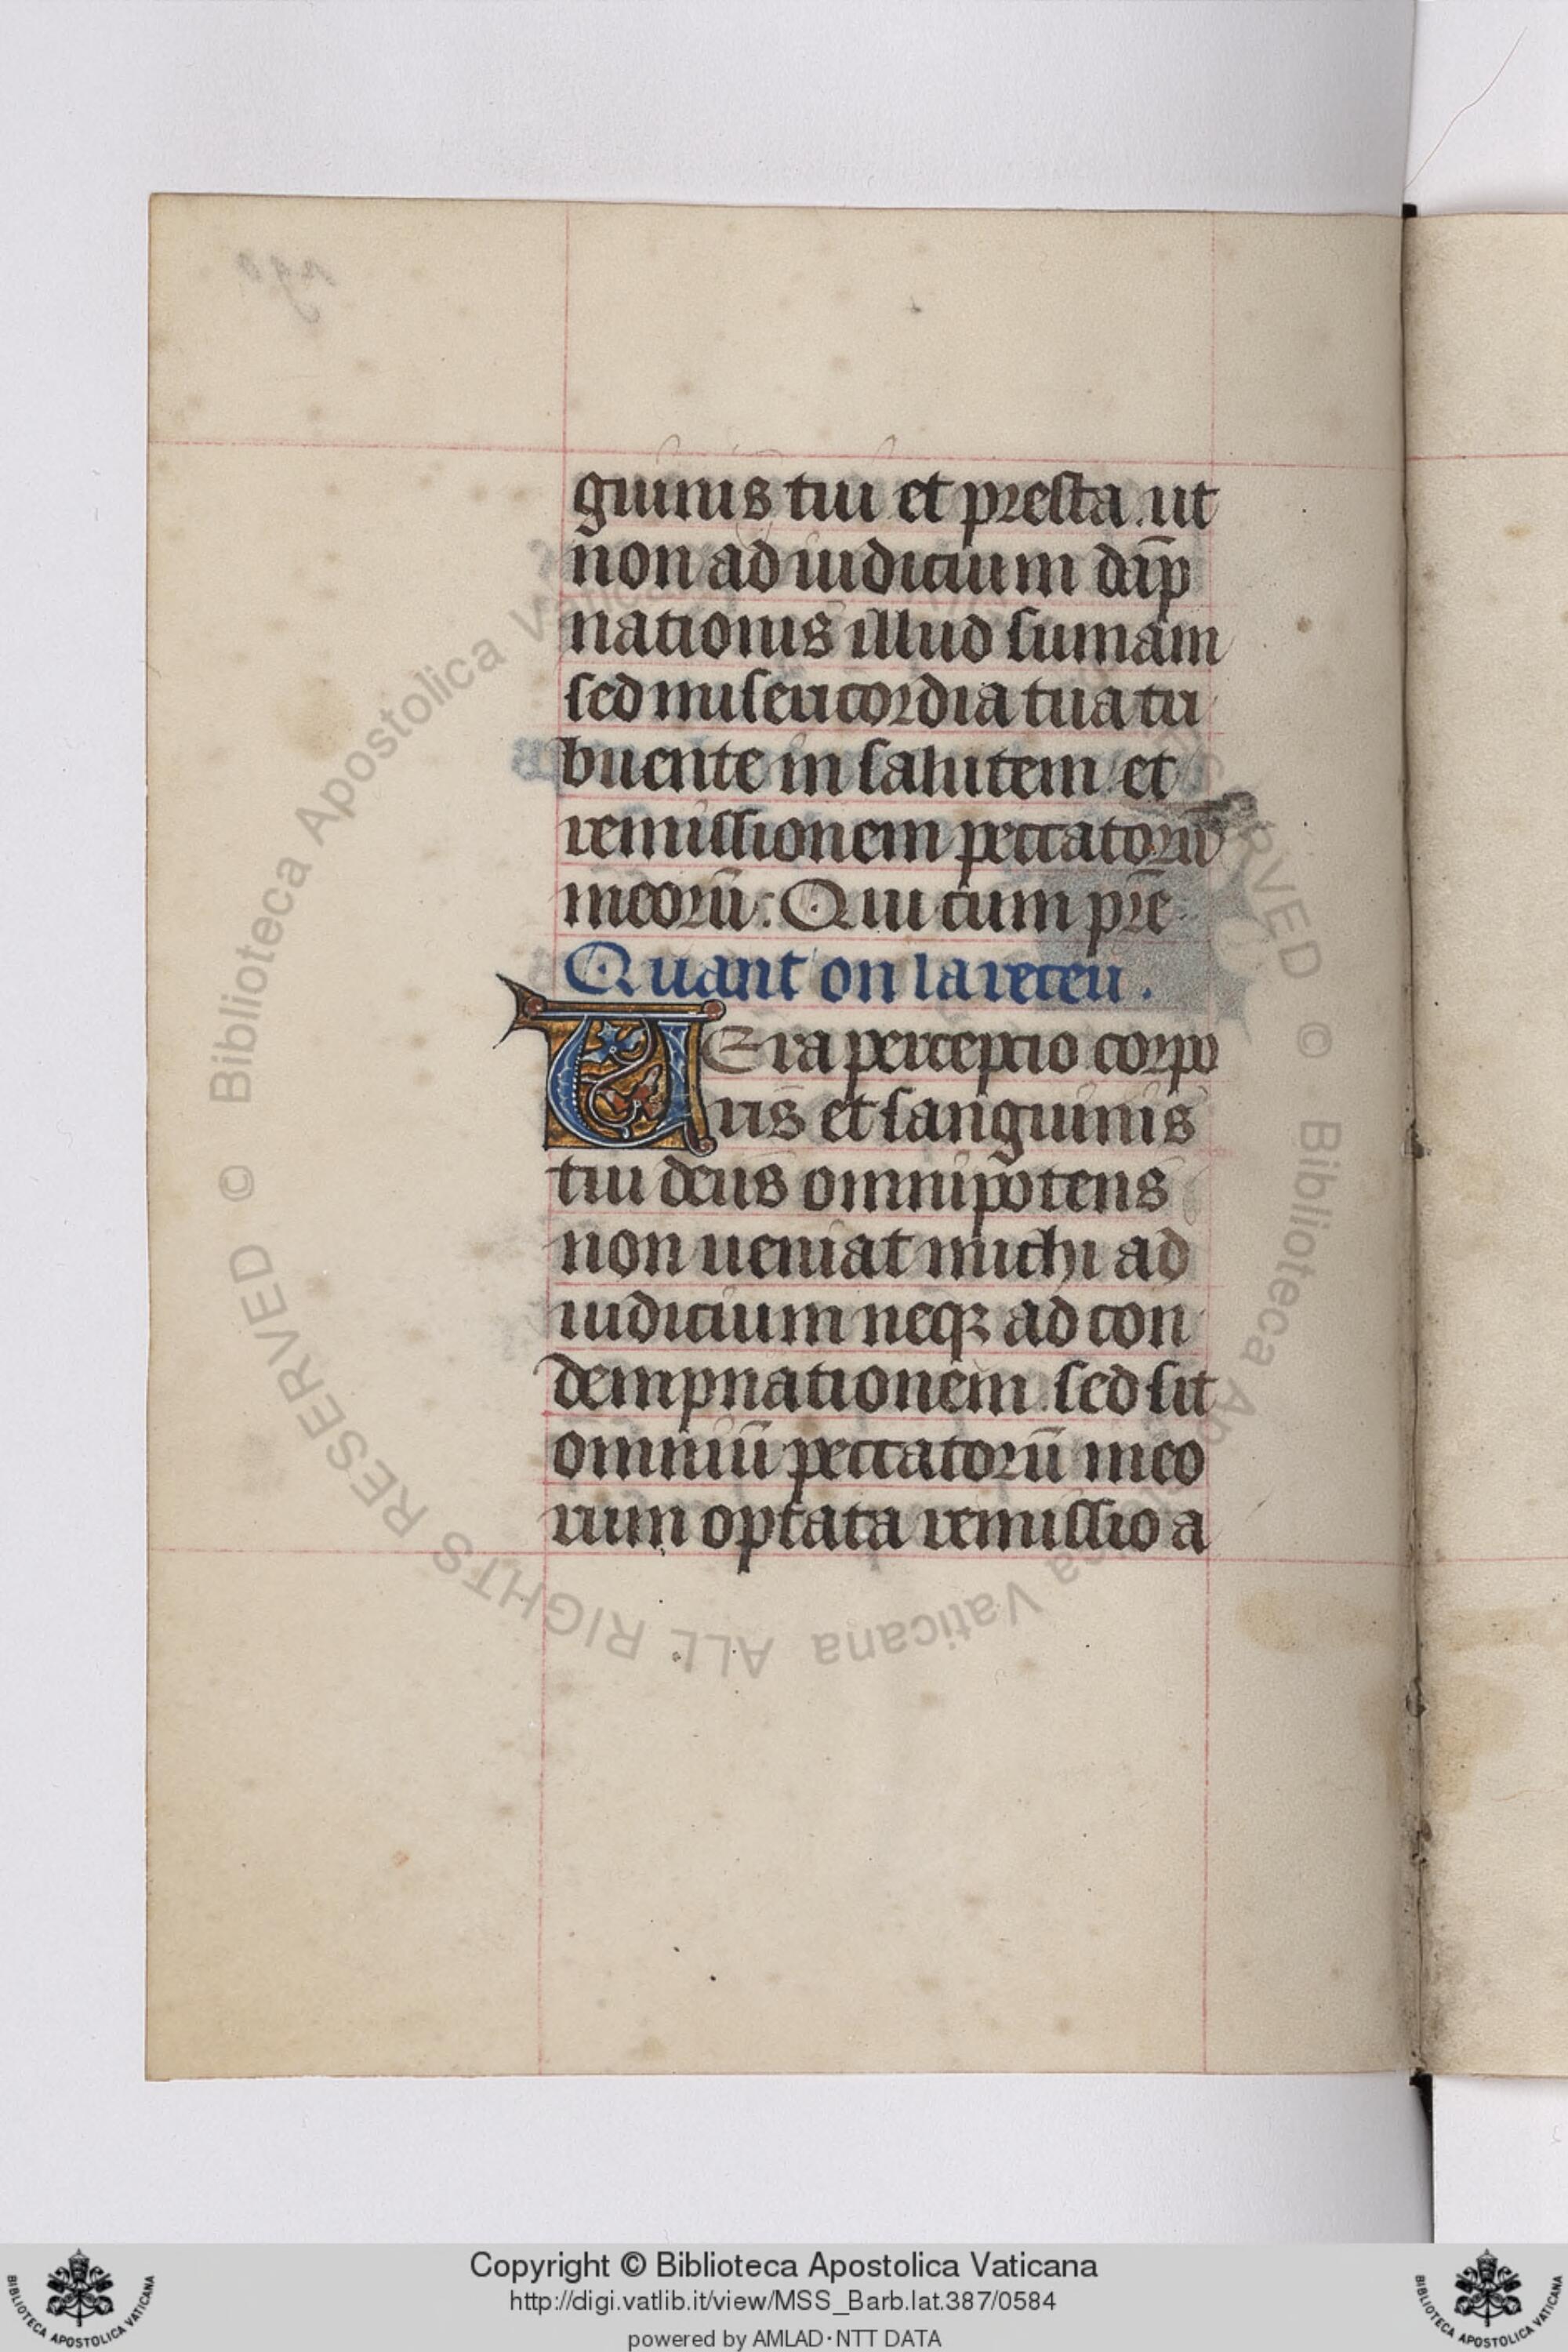 guinis tui et presta. ut
non ad iudicium dāp
nationis illud sumam
sed misericordia tua tri
buente in salutem et
remissionem peccatorū
meorū: Qui cum pr̄e
Quant on la receu.
UEra perceptio corpo
ris et sanguinis
tui deus omnipotens
non ueniat michi ad
iudicium neqꝫ ad con
dempnationem. sed sit
omniū peccatorū meo
rum optata remissio a
Biblioteca Apostolica Vaticana ALL RIGHTS RESERVED ©
Biblioteca Apostolica Vaticana ALL RIGHTS RESERVED ©
Copyright © Biblioteca Apostolica Vaticana
http://digi.vatlib.it/view/MSS_Barb.lat.387/0584
powered by AMLAD·NTT DATA
BIBLIOTECA APOSTOLICA VATICANA
BIBLIOTECA APOSTOLICA VATICANA